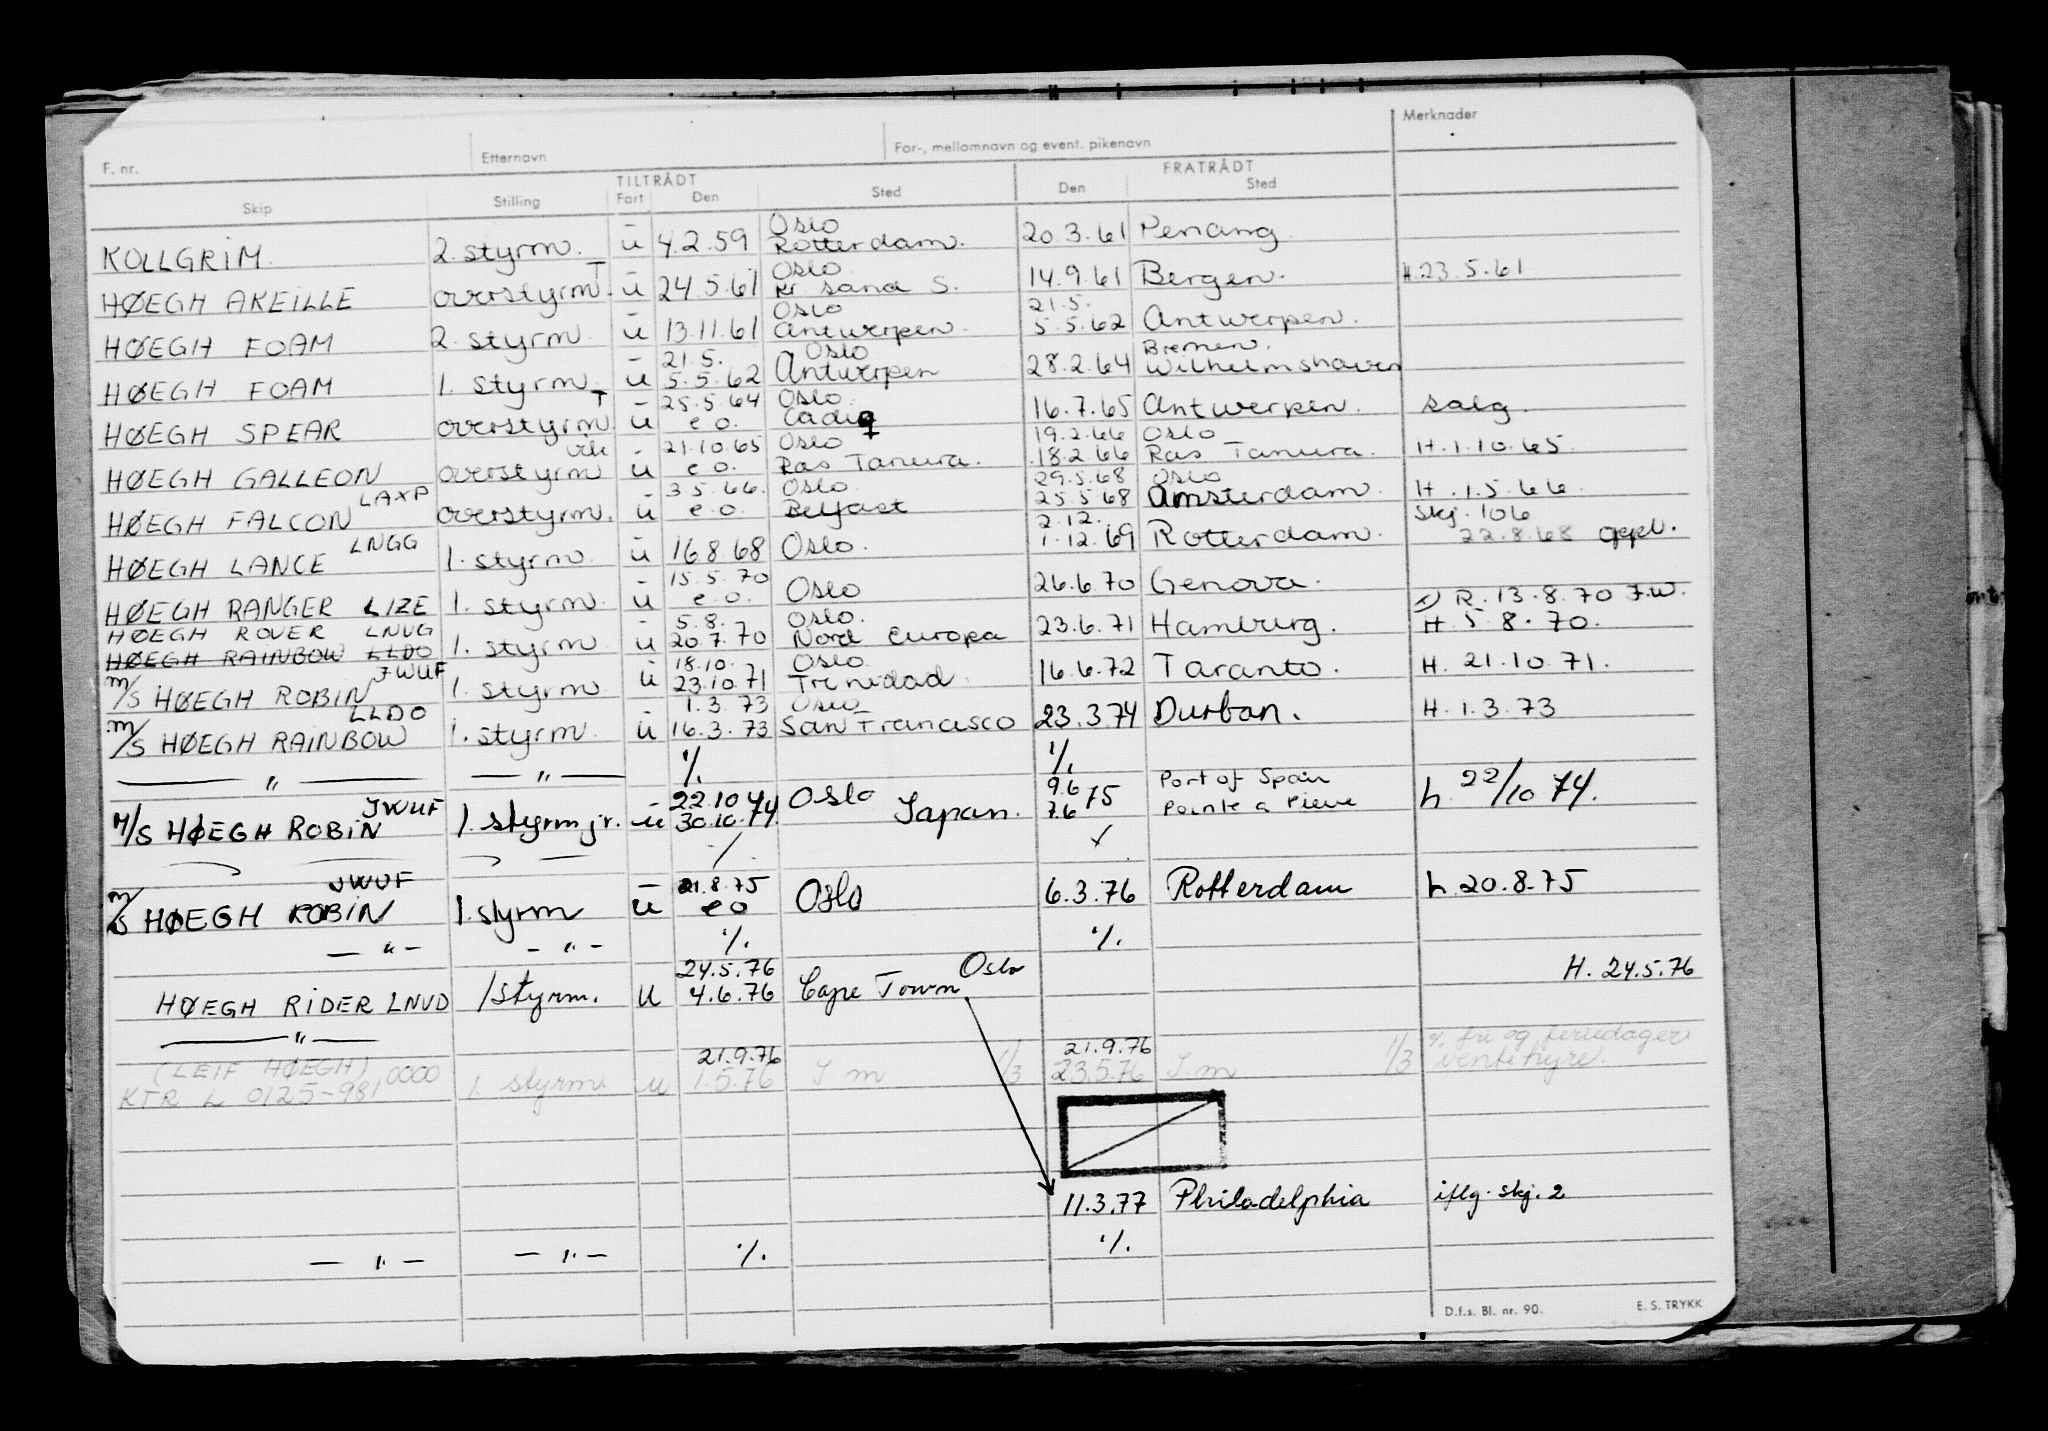 Merknader
F. nr. Etternavn For-, mellomnavn og event. pikenavn
TILTRÅDT FRATRÅDT
Skip Stilling Fart Den Sted Den Sted
- Oslo
KOLLGRIM 2. styrm. u 4.2.59 Rotterdam. 20.3.61 Penang
T - Oslo
HØEGH AKEILLE overstyrm. u 24.5.61 Kr sand S. 14.9.61 Bergen. H.23.5.61
- Oslo 21.5.
HØEGH FOAM 2. styrm u 13.11.61 Antwerpen. 5.5.62 Antwerpen.
- 21.5. Oslo Bremen.
HØEGH FOAM 1. styrm u 5.5.62 Antwerpen 28.2.64 Wilhelmshaven
T - 25.5.64 Oslo.
HØEGH SPEAR overstyrm u e.o. Cadiz 16.7.65 Antwerpen. salg.
- 21.10.65 Oslo 19.2.66 Oslo
HØEGH GALLEON overstyrm u e.o. Ras Tanura. 18.2.66 Ras Tanura. H.1.10.65.
LAXP - 3.5.66. Oslo. 29.5.68 Oslo
HØEGH FALCON overstyrm. u e.o. Belfast 25.5.68 Amsterdam. H.1.5.66.
LNGG - 2.12. Skj. 106
HØEGH LANCE 1. styrm. u 16.8.68 Oslo. 1.12.69 Rotterdam. 22.8.68 oppl.
- 15.5.70
HØEGH RANGER LIZE 1. styrm. u e.o. Oslo 26.6.70 Genova. R.13.8.70 F.W.
HØEGH ROVER LNUG - 5.8. Oslo.
HØEGH RAINBOW LLDO 1. styrm u 20.7.70 Nord Europa 23.6.71 Hamburg. H.5.8.70.
JWUF 18.10. Oslo
M/S HØEGH ROBIN 1. styrm u 23.10.71 Trinidad. 16.6.72 Taranto. H. 21.10.71.
LLDO - 1.3.73 Oslo
M/S HØEGH RAINBOW 1. styrm. u 16.3.73 San Francisco 23.3.74 Durban. H.1.3.73
— " — — " — ./. ./.
JWUF - 22.10.74 Oslo 9.6 Port of Spain
M/S HØEGH ROBIN 1. styrm jr. u 30.10.74. Japan. 7.6 75 Pointe a Pierre h. 22/10 74.
./.
JWUF - 21.8.75
M/S HØEGH ROBIN 1. styrm u e o Oslo 6.3.76 Rotterdam h.20.8.75
— " — — " — ./. ./.
24.5.76 Oslo H. 24.5.76
HØEGH RIDER LNVD 1 styrm. u 4.6.76 Cape Town
— " —
(LEIF HØEGH) 21.9.76 21.9.76 % fri og feriedager
KTR L 0125-981 0000 1. styrm. u 1.5.76 I m 1/3 23.5.76 I m 1/3 ventehyre.
11.3.77 Philadelphia iflg. skj. 2
— " — — " — ./. ./.
D.f.s. Bl. nr. 90. E. S. TRYKK